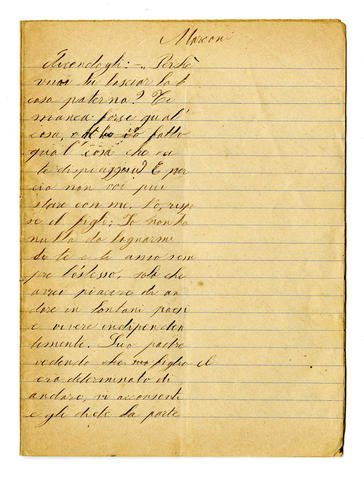 Marconi
dicendogli: -,, Perchè
vuoi tu lasciar la t
casa paterna? Te
manca forse qual
cosa, o ho io fatto
qual cosa che ea
te dispiaza? E per
ciò non voi piu
stare con me. No, rispo
se il figli: Io non ho
nulla da lagnarmi
di te e ti amo sem
pre lo stesso, solo che
avrei piacere di an
dare in lontani paesi
e vivere indipenden
temente. Suo padre
vedendo che suo figlio el
era determinato di
andare, vi acconsentì
e gli diede la parte